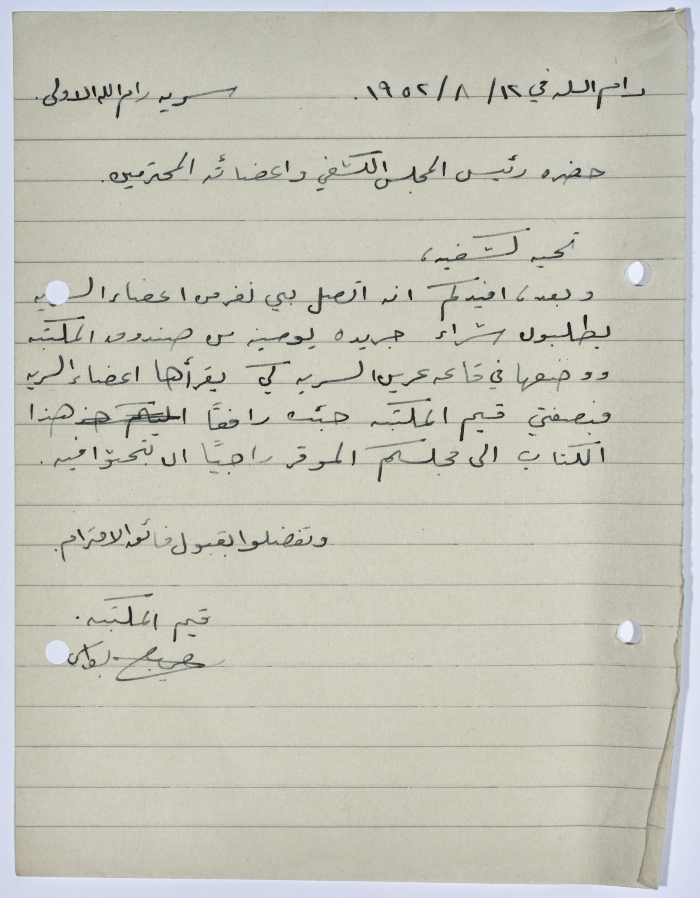 رام الله في ١٢ / ٨ / ١٩٥٢. سرية رام الله الاولى.
حضرة رئيس المجلس الكشفي واعضائه المحترمين.
تحية كشفية،
وبعد، افيدكم انه اتصل بي نفر من اعضاء السرية
يطلبون شراء جريدة يومية من صندوق المكتبة
ووضعها في قاعة عرين السرية كي يقرأها اعضاء السرية
فبصفتي قيم المكتبة جئت رافعًا اليكم هذ هذا
الكتاب الى مجلسكم الموقر راجيًا ان تبحثوا فيه.
وتفضلوا بقبول فائق الاحترام.
قيم المكتبة.